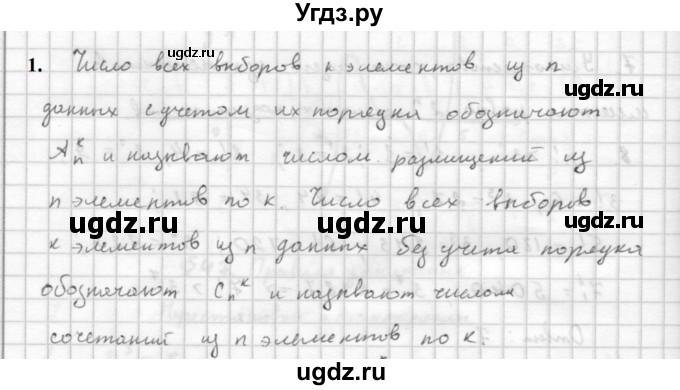 Угдз.ру
1. Число всех выборов k элементов из n
данных с учетом их порядка обозначают
Aₙᵏ и называют числом размещений из
n элементов по k. Число всех выборов
k элементов из n данных без учета порядка
обозначают Cₙᵏ и называют числом
сочетаний из n элементов по k.
ugdz.ru
ugdz.ru
ugdz.ru
ugdz.ru
ugdz.ru
ugdz.ru
ugdz.ru
ugdz.ru
ugdz.ru
ugdz.ru
ugdz.ru